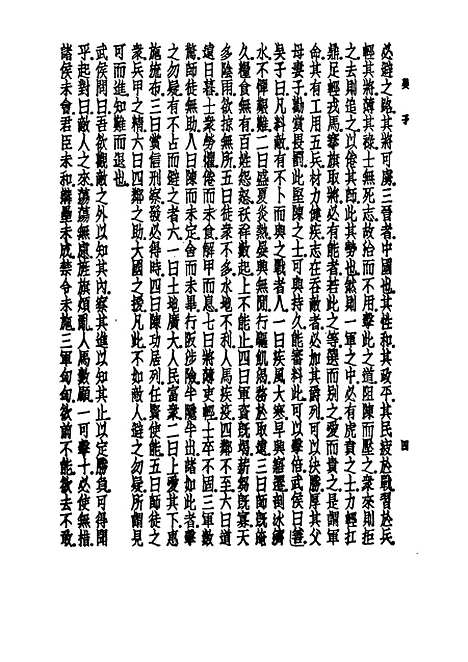 吳子
四
必避之路其將可虜三晉者中國也其性和其政平其民疲於戰習於兵
輕其將薄其祿士無死志故治而不用擊此之道阻陳而壓之衆來則拒
之去則追之以倦其師此其勢也然則一軍之中必有虎賁之士力輕扛
鼎足輕戎馬搴旗取將必有能者若此之等選而別之愛而貴之是謂軍
命其有工用五兵材力健疾志在吞敵者必加其爵列可以決勝厚其父
母妻子勸賞畏罰此堅陳之士可與持久能審料此可以擊倍武侯曰善
吳子曰凡料敵有不卜而與之戰者八一曰疾風大寒早興寤遷剖冰濟
水不憚艱難二曰盛夏炎熱晏興無間行驅飢渴務於取遠三曰師既淹
久糧食無有百姓怨怒祅祥數起上不能止四曰軍資既竭薪芻既寡天
多陰雨欲掠無所五曰徒衆不多水地不利人馬疾疫四鄰不至六曰道
遠日暮士衆勞懼倦而未食解甲而息七曰將薄吏輕士卒不固三軍數
驚師徒無助八曰陳而未定舍而未畢行阪涉險半隱半出諸如此者擊
之勿疑有不占而避之者六一曰土地廣大人民富衆二曰上愛其下惠
施流布三曰賞信刑察發必得時四曰陳功居列任賢使能五曰師徒之
衆兵甲之精六曰四鄰之助大國之援凡此不如敵人避之勿疑所謂見
可而進知難而退也
武侯問曰吾欲觀敵之外以知其內察其進以知其止以定勝負可得聞
乎起對曰敵人之來蕩蕩無慮旌旗煩亂人馬數顧一可擊十必使無措
諸侯未會君臣未和溝壘未成禁令未施三軍匈匈欲前不能欲去不敢